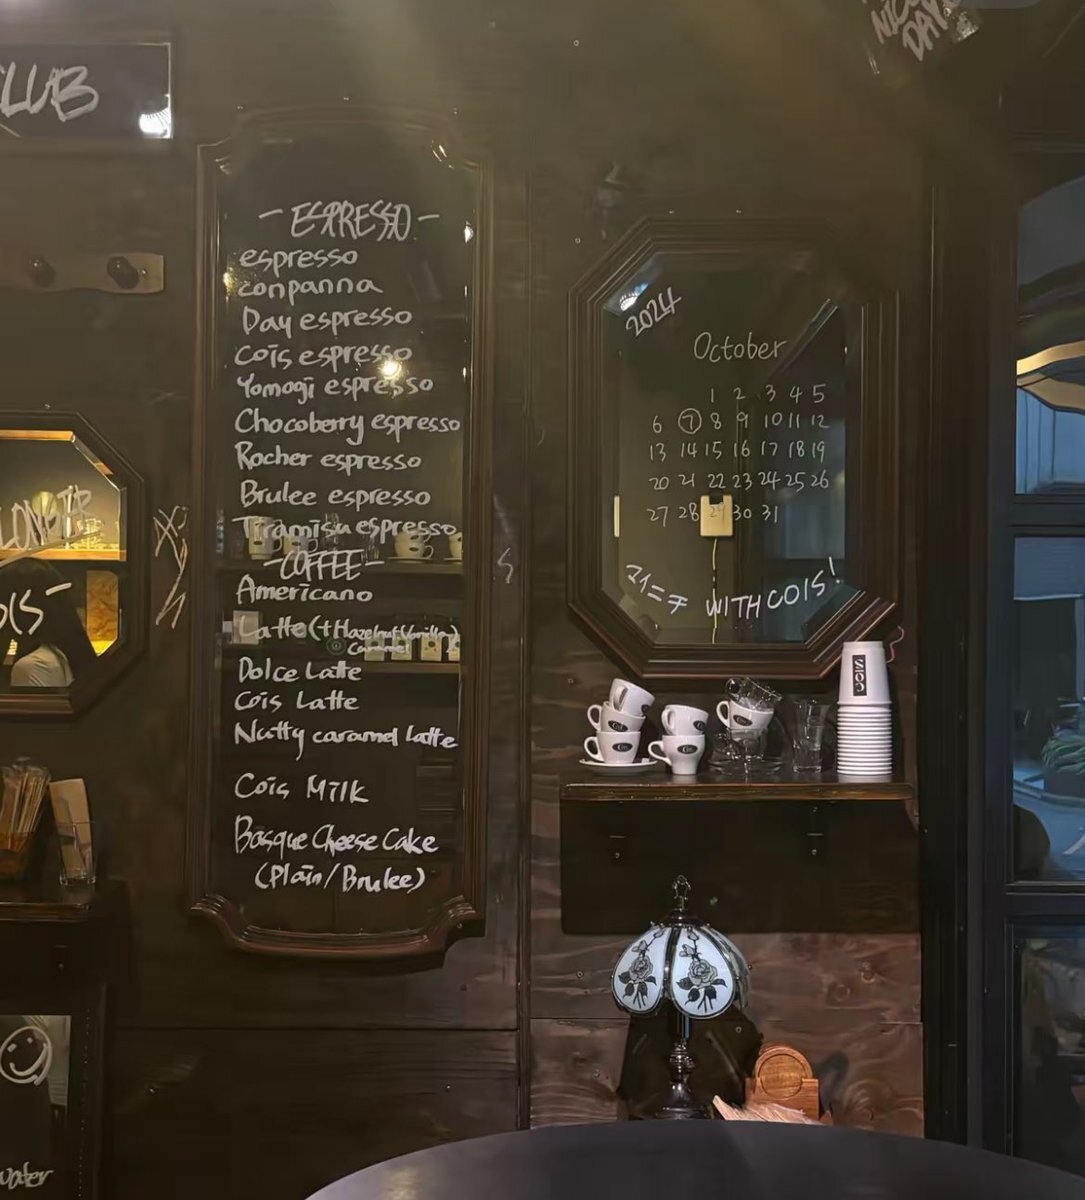 CLUB
NICE
DAY
- ESPRESSO -
espresso
conpanna
Day espresso
Cois espresso
Yomogi espresso
Chocoberry espresso
Rocher espresso
Brulee espresso
Tiramisu espresso
- COFFEE -
Americano
Latte (+Hazelnut, Vanilla,
Caramel)
Dolce Latte
Cois Latte
Nutty caramel Latte
Cois Milk
Basque Cheese Cake
(Plain/Brulee)
2024
October
1 2 3 4 5
6 7 8 9 10 11 12
13 14 15 16 17 18 19
20 21 22 23 24 25 26
27 28 29 30 31
WITH COIS!
LONGER
OIS -
COIS